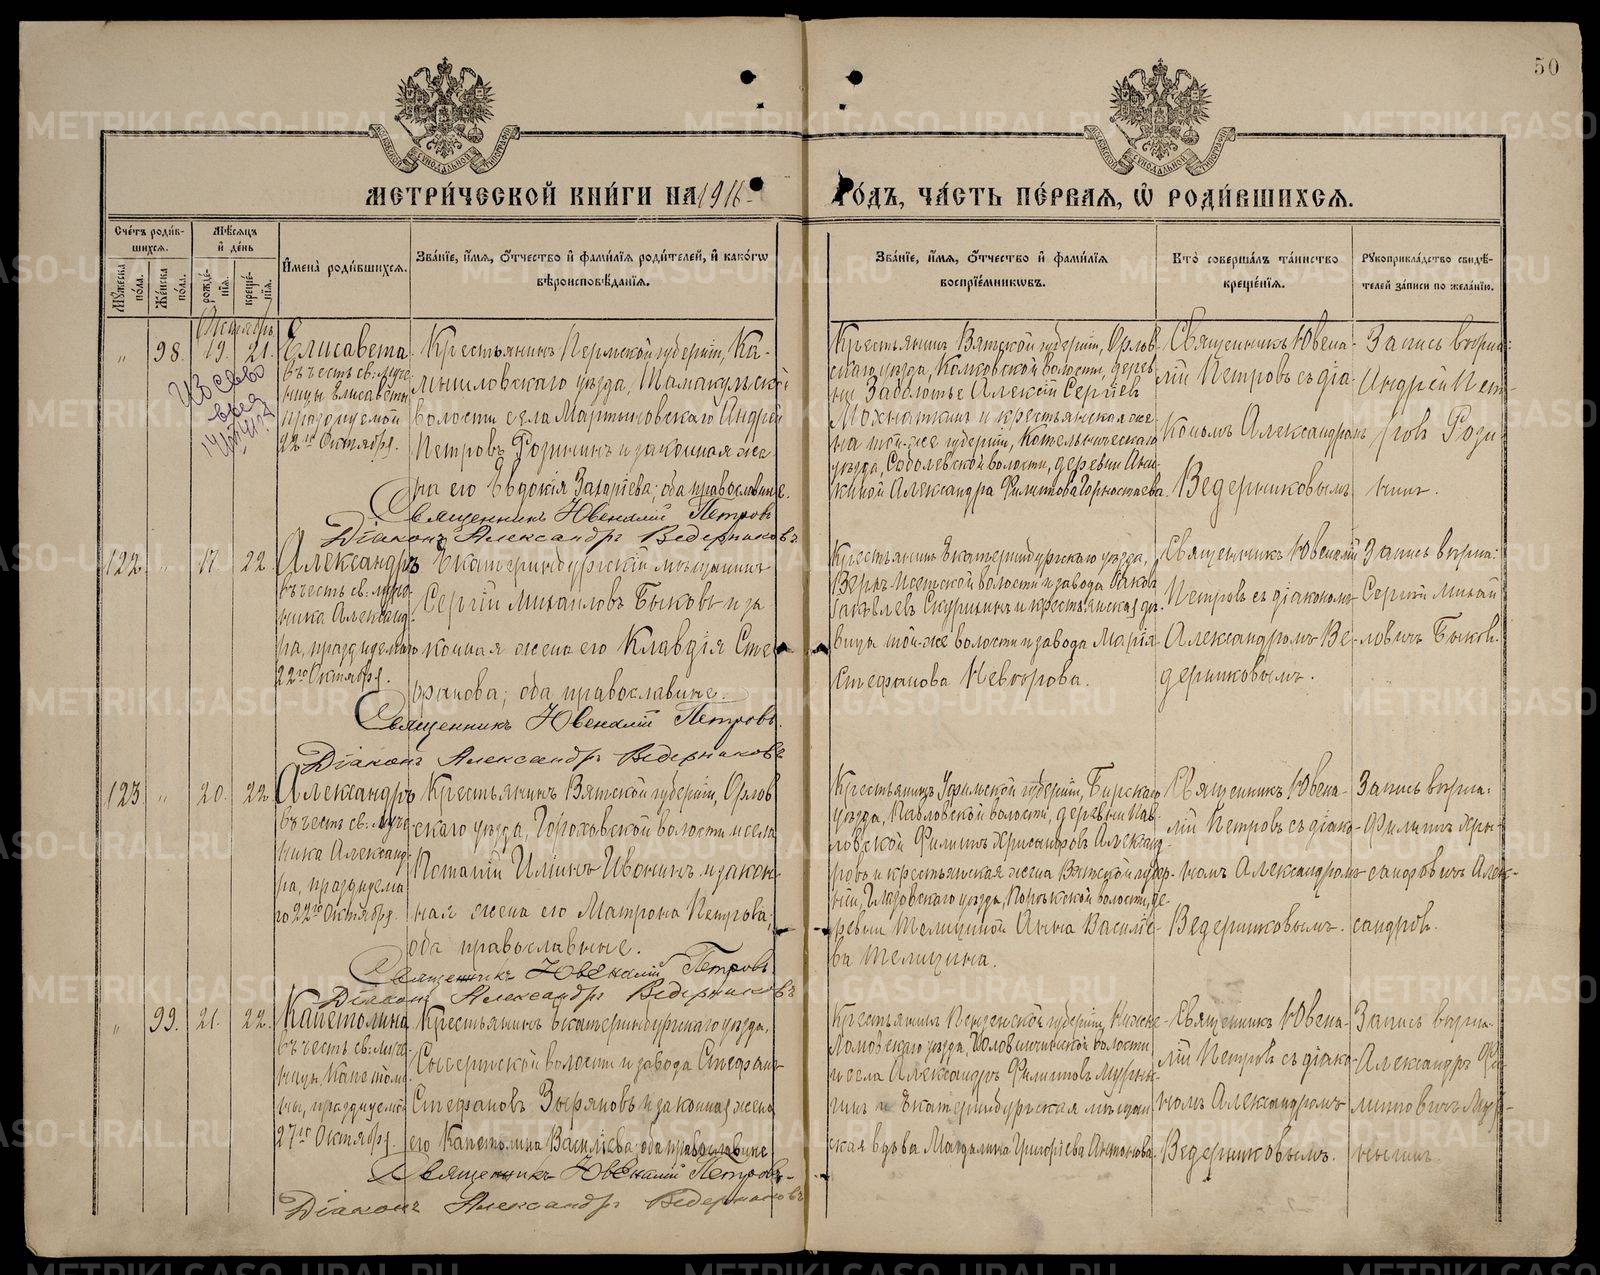 50
МЕТРИ́ЧЕСКОЙ КНИ́ГИ НА 1916
ГО́ДЪ, ЧА́СТЬ ПЕ́РВАѦ, Ѡ РОДИ́ВШИХСѦ.
Сче́тъ роди́в-
шихсѧ.
Мѣ́сѧцъ
и҆ де́нь
Мꙋ́жеска по́ла.
Же́нска по́ла.
рожде́-
нїѧ.
креще́-
нїѧ.
И҆мена̀ роди́вшихсѧ.
Зва́нїе, и҆́мѧ, о҆́тчество и҆ фами́лїѧ роди́телей, и҆ како́гѡ
вѣроисповѣ́данїѧ.
Зва́нїе, и҆́мѧ, о҆́тчество и҆ фами́лїѧ
воспрїе́мникѡвъ.
Кто̀ соверша́лъ та́инство
креще́нїѧ.
Рꙋкоприкла́дство свидѣ́-
телей за́писи по жела́нїю.
Октябрь
" 98. 19. 21.
Елисавета
въ честь св: муче-
ницы Елисаветы
празднуемой
22го Октября.
Крестьянинъ Пермской губерніи, Ка-
мышловскаго уѣзда, Тамакульской
волости села Мартыновскаго Андрей
Петровъ Родинъ и законная же-
на его Евдокія Захаріева; оба православные.
Священникъ Ювеналій Петровъ
Діаконъ Александръ Ведерниковъ
Крестьянинъ Вятской губерніи, Орлов-
скаго уѣзда, Колковской волости, дерев
ни Заболотье Алексій Сергіевъ
Мохнаткинъ и крестьянская же-
на той-же губерніи, Котельническаго
уѣзда, Соболевской волости, деревни
Александра Филиппова Горностаева
Священникъ Ювена-
лій Петровъ съ діа-
кономъ Александромъ
Ведерниковымъ
Запись вѣрна:
Андрей Пет-
ровъ
122 " 17. 22
Александръ
въ честь св: муче-
ника Александ-
ра, празднуемаго
22го Октября.
Екатеринбургскій мѣщанинъ
Сергій Михаиловъ Быковъ и за
конная жена его Клавдія Сте-
фанова; оба православные.
Священникъ Ювеналій Петровъ.
Діаконъ Александръ Ведерниковъ
Крестьянинъ Екатеринбургскаго уѣзда,
Верхъ-Исетской волости и завода Іаковъ
Іаковлевъ Скурихинъ и крестьянская дѣ-
вица той-же волости и завода Марія
Стефанова Невзорова.
Священникъ Ювеналій
Петровъ съ діакономъ
Александромъ Ве-
дерниковымъ.
Запись вѣрна:
Сергій Михай
ловичъ Быковъ.
123. " 20. 22
Александръ
въ честь св: муче-
ника Александ-
ра, празднуема
го 22го Октября.
Крестьянинъ Вятской губерніи, Орлов
скаго уѣзда, Гороховской волости и села
Потапій Иліинъ Ивонинъ и закон-
ная жена его Матрона Петрова;
оба православные.
Священникъ Ювеналій Петровъ.
Діаконъ Александръ Ведерниковъ
Крестьянинъ Уфимской губерніи, Бирскаго
уѣзда, Павловской волости, деревни Пав-
ловской Филиппъ Хрисанфовъ Александ-
ровъ и крестьянская жена Вятской губер-
ніи, Глазовскаго уѣзда, волости, де-
ревни Телицыной Анна Василіе-
ва Телицина.
Священникъ Ювена-
лій Петровъ съ діако-
номъ Александромъ
Ведерниковымъ.
Запись вѣрна:
Филиппъ Хри-
санфовичъ Алек-
сандровъ.
" 99. 21. 22.
Капетолина
въ честь св: муче-
ницы Капетоли-
ны, празднуемой
27го Октября.
Крестьянинъ Екатеринбургскаго уѣзда,
Сысертской волости и завода Стефанъ
Стефановъ Зыряновъ и законная жена
его Капетолина Василіева; оба православные
Священникъ Ювеналій Петровъ.
Діаконъ Александръ Ведерниковъ
Крестьянинъ Пензенской губерніи, Нижне-
Ломовскаго уѣзда, Головинщинской волости
и села Александръ Филипповъ Мурны-
гинъ и Екатеринбургская мѣщан-
ская вдова Магдалина Григоріева Антонова.
Священникъ Ювена-
лій Петровъ съ діако-
номъ Александромъ
Ведерниковымъ.
Запись вѣрна
Александръ Фи-
липповичъ